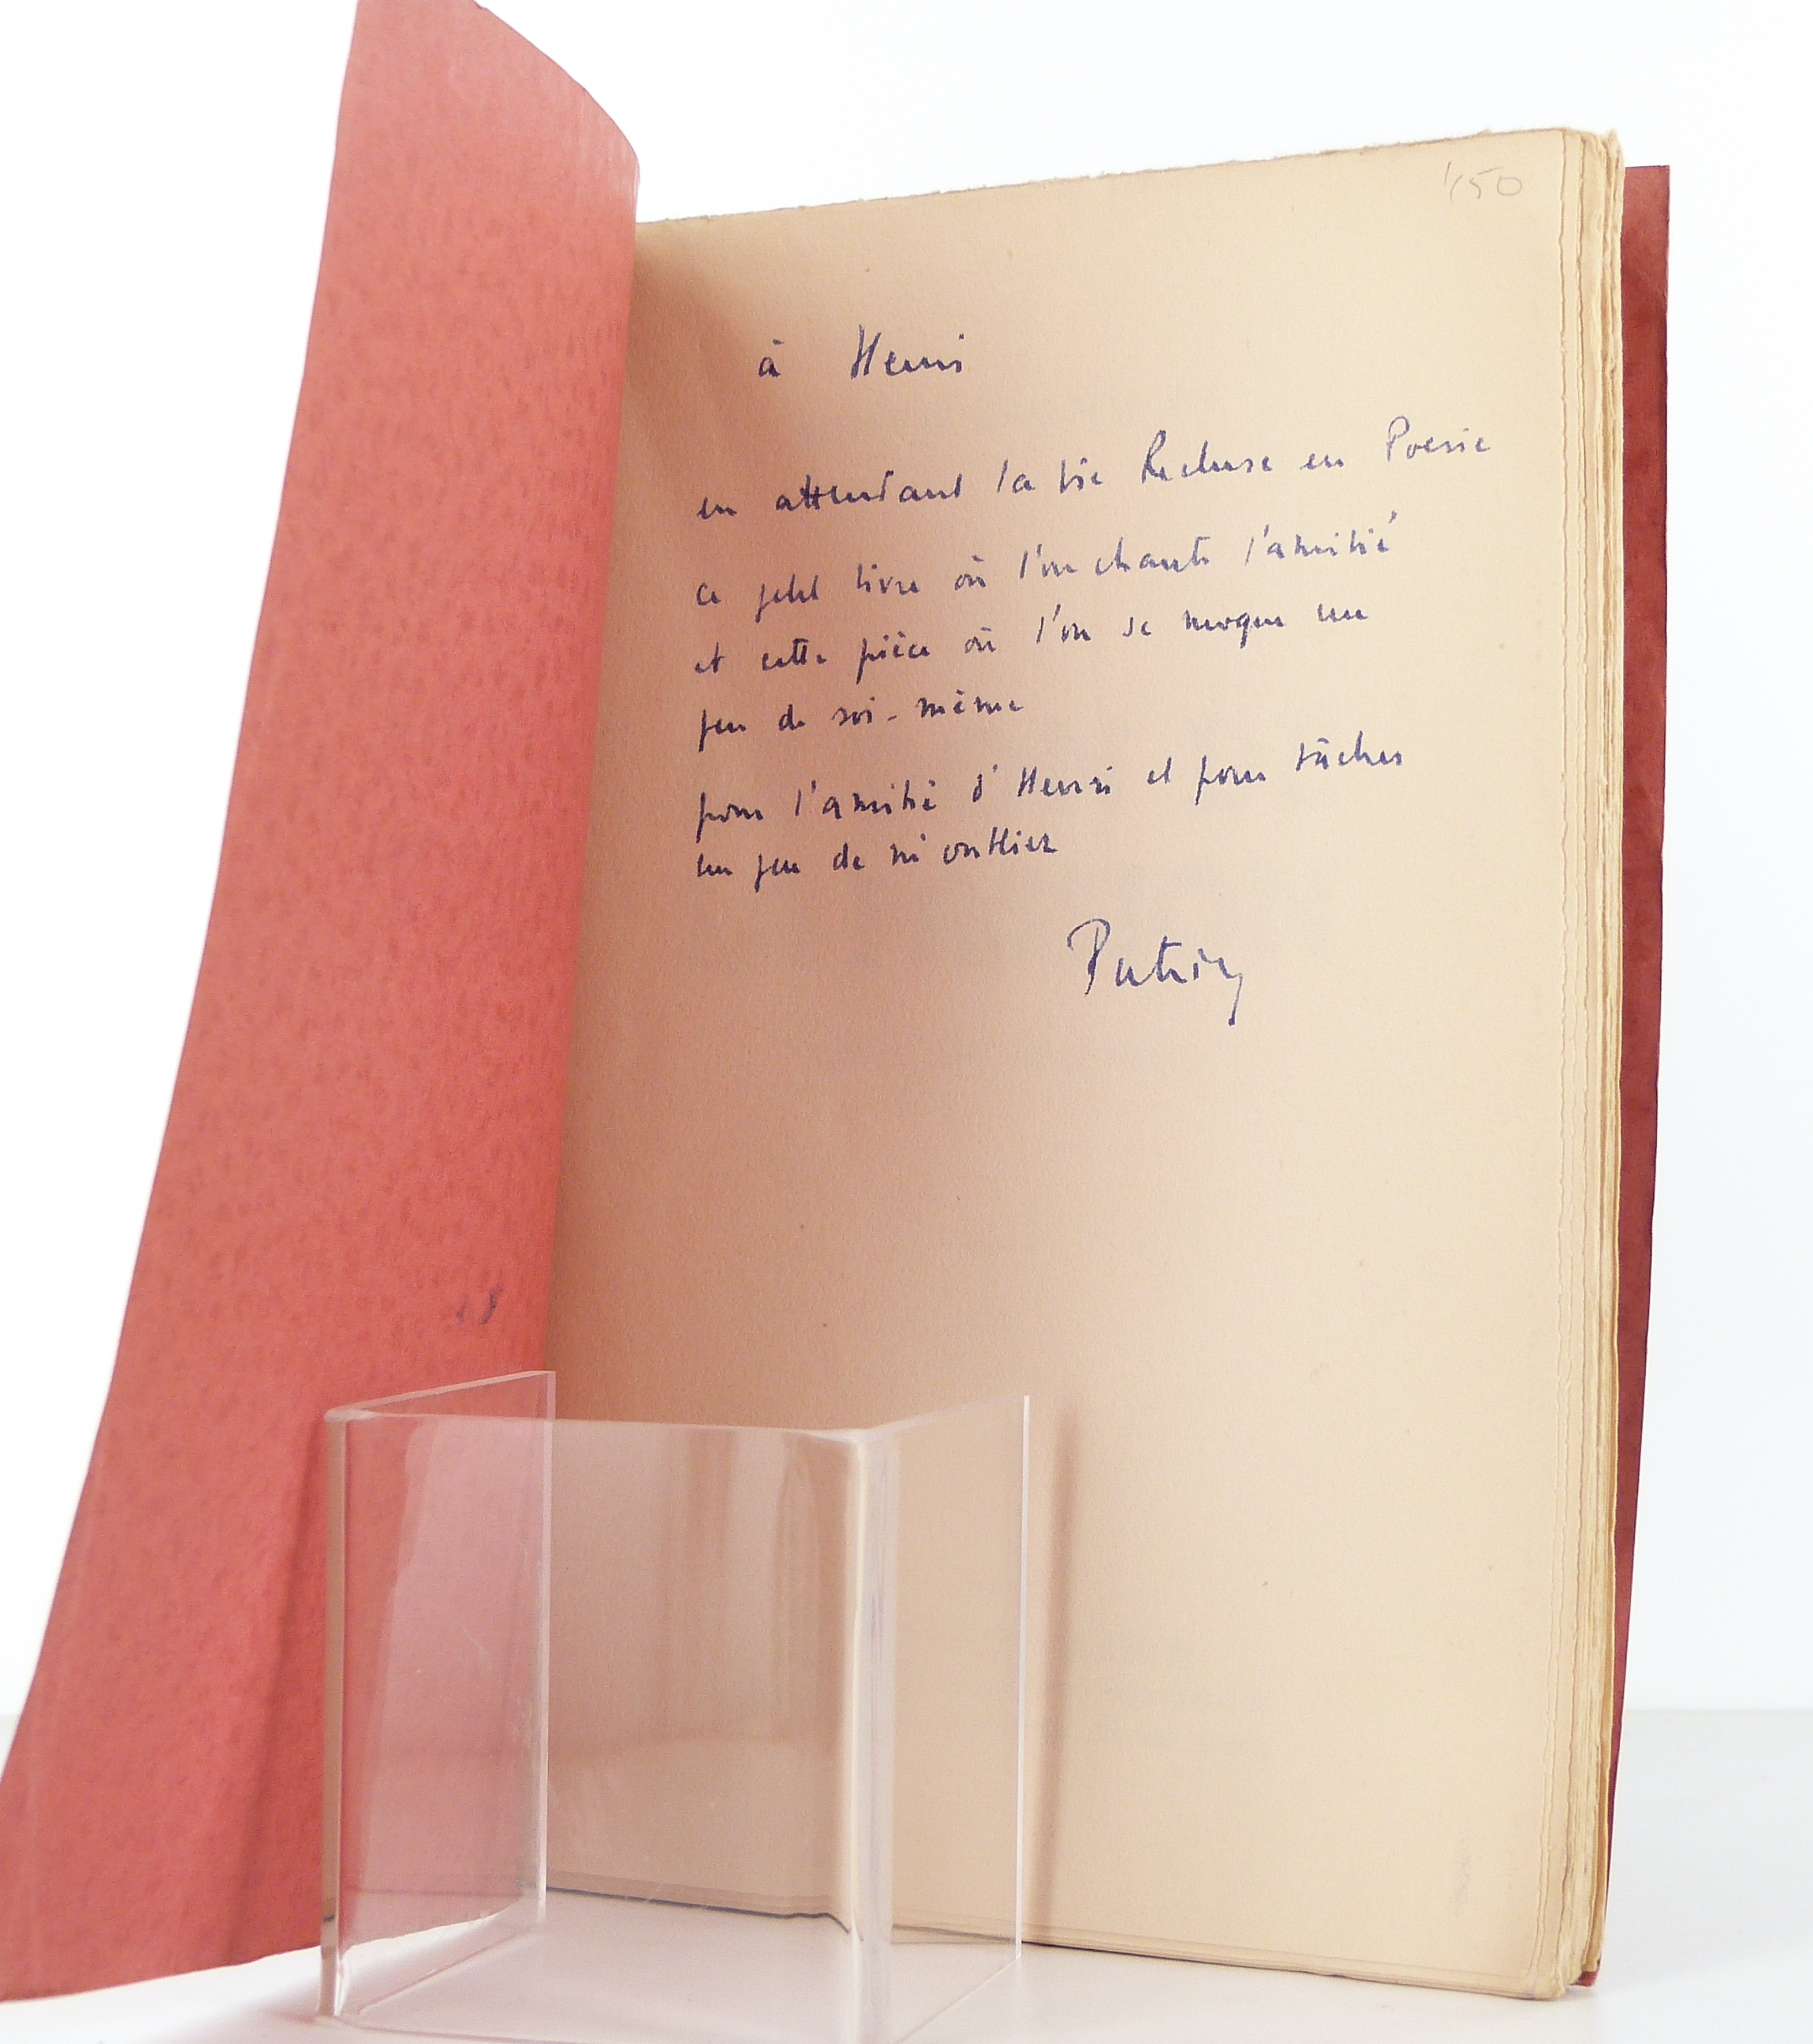 à Henri
en attendant la Vie Recluse en Poesie
ce petit livre où l'on chante l'amitié
et cette pièce où l'on se moque un
peu de soi-même
pour l'amitié d'Henri et pour tâcher
un peu de m'oublier
Patrice